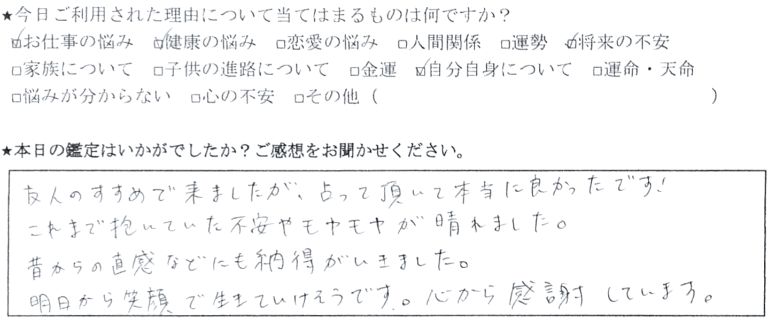 ★今日ご利用された理由について当てはまるものは何ですか？
☑お仕事の悩み ☑健康の悩み □恋愛の悩み □人間関係 □運勢 ☑将来の不安
□家族について □子供の進路について □金運 ☑自分自身について □運命・天命
□悩みが分からない □心の不安 □その他（ ）
★本日の鑑定はいかがでしたか？ご感想をお聞かせください。
友人のすすめで来ましたが、占って頂いて本当に良かったです！
これまで抱いていた不安やモヤモヤが晴れました。
昔からの直感などにも納得がいきました。
明日から笑顔で生きていけそうです。心から感謝しています。